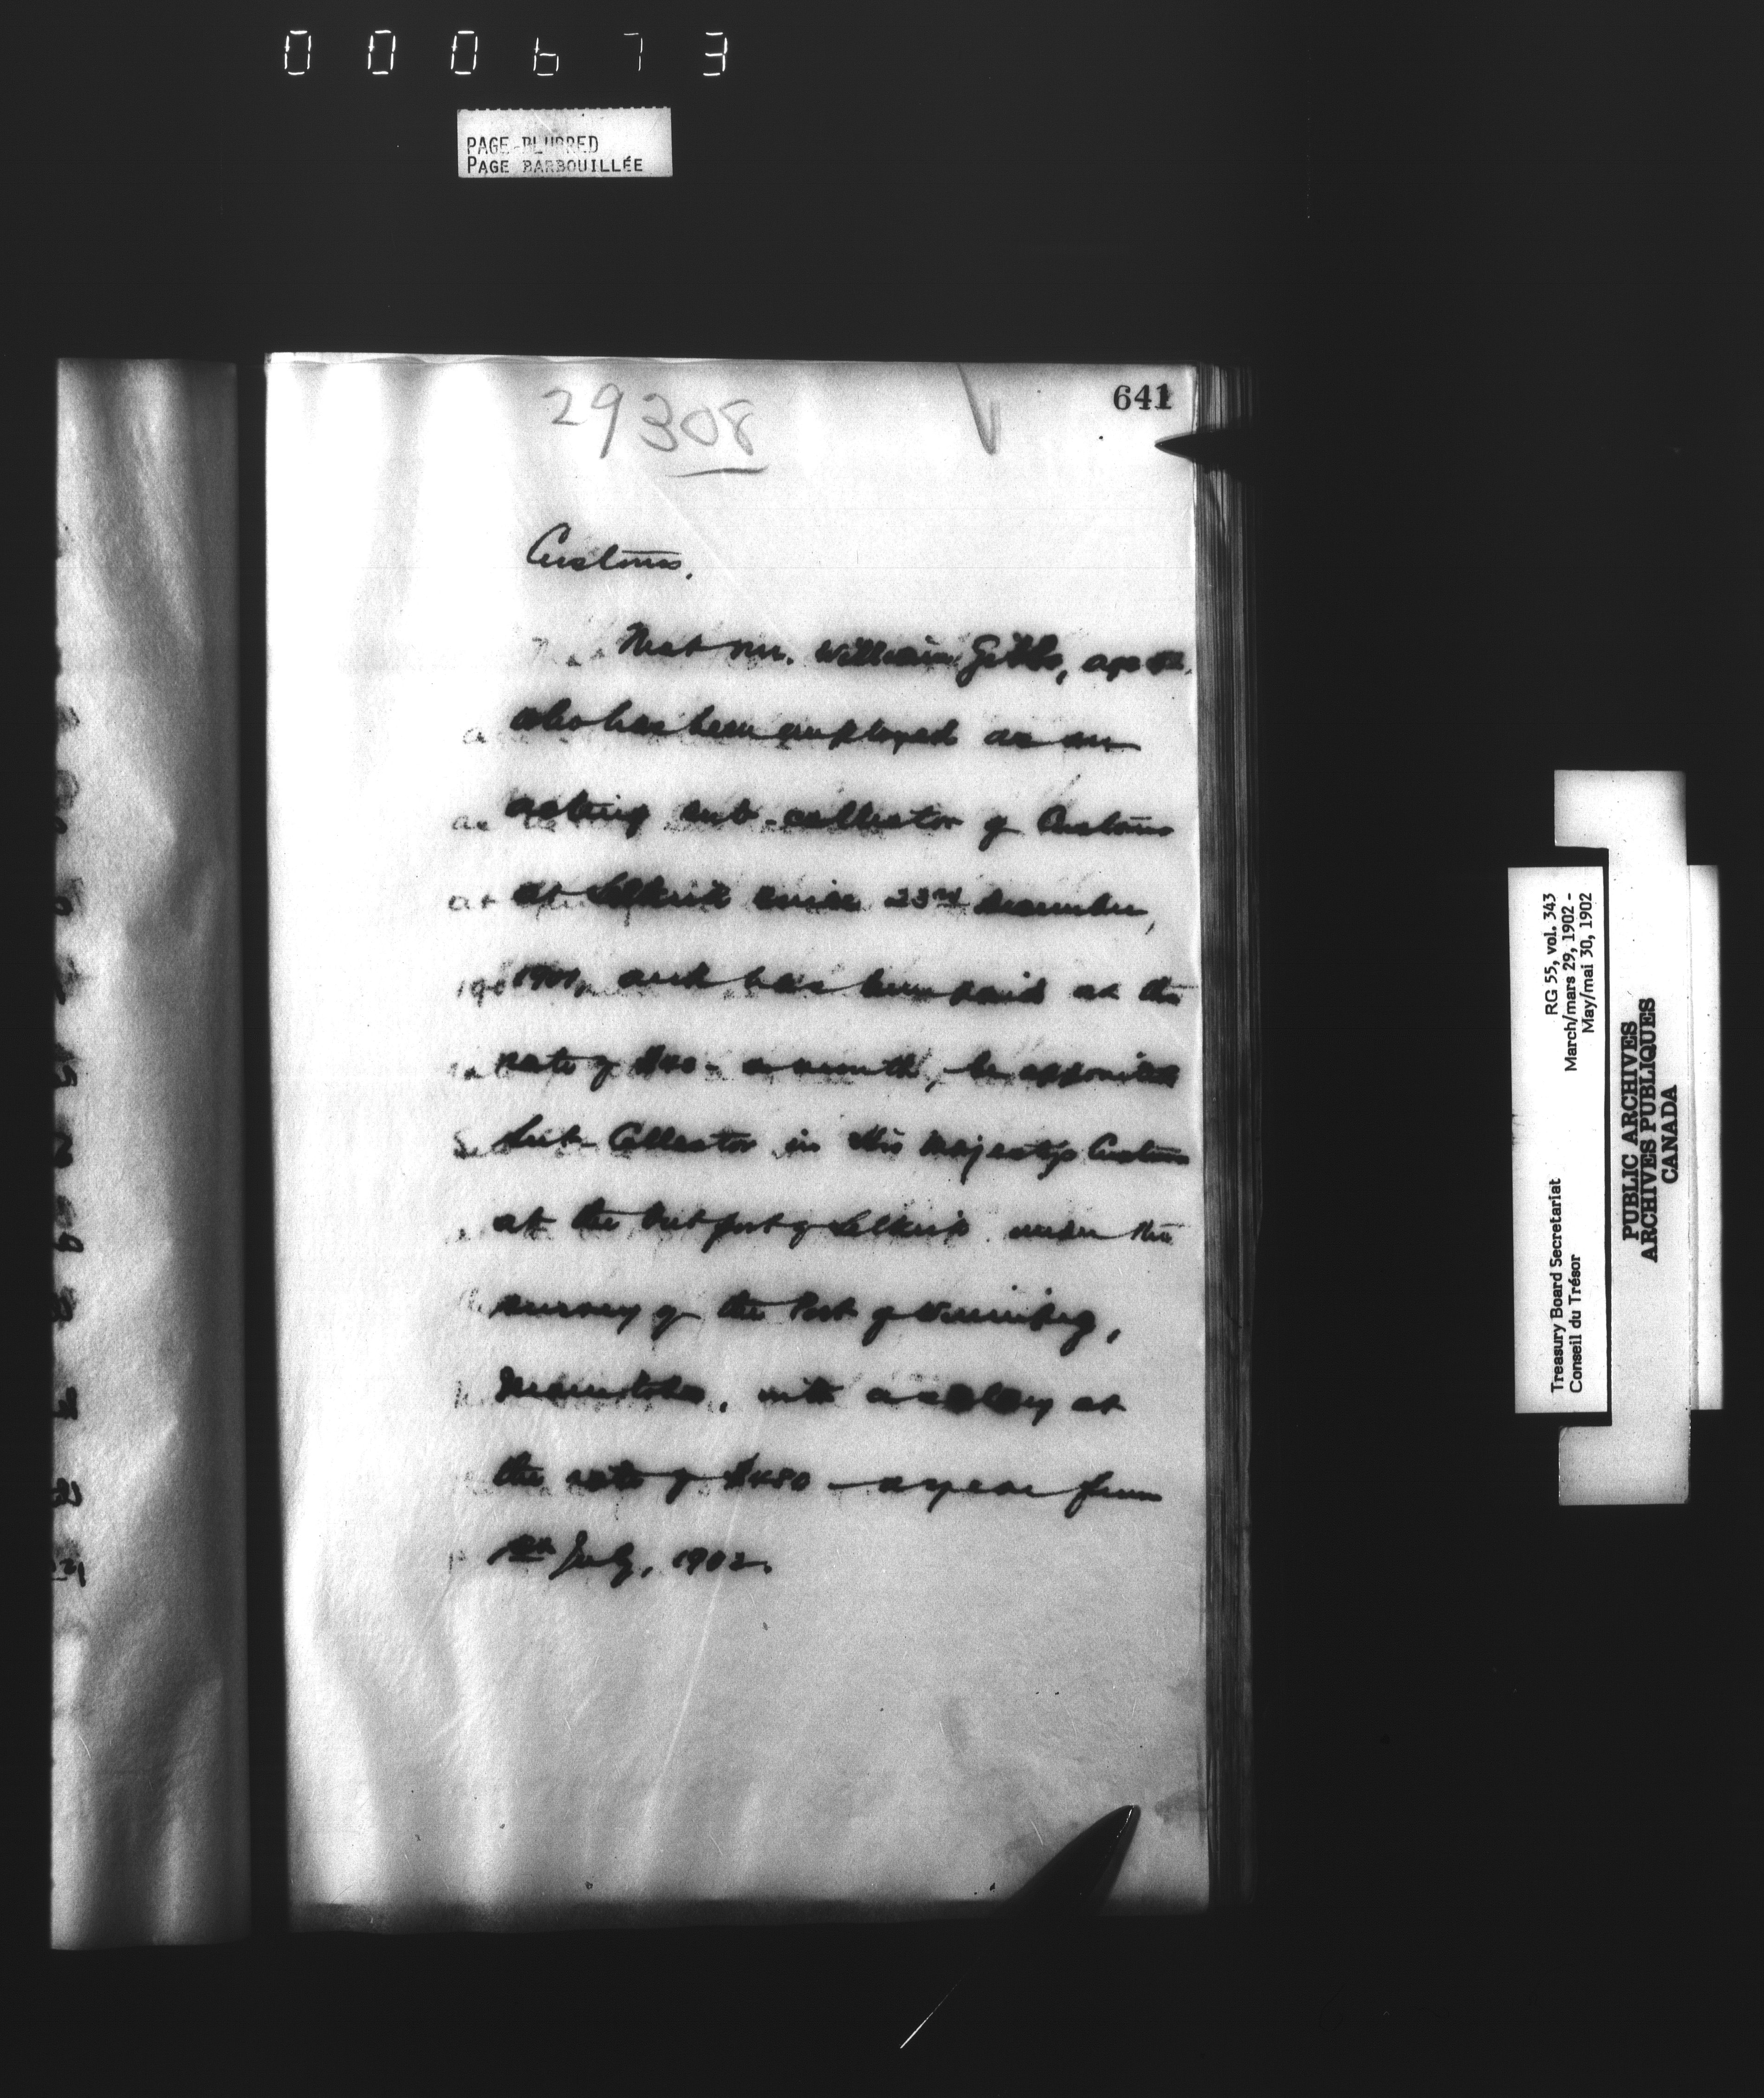 000673
PAGE BLURRED
PAGE BARBOUILLÉE
641
29308
Customs.
That Mr. William Gibbs, age
who has been employed as an
acting sub-collector of Customs
at Selkirk since 23rd December,
1901, and has been paid at the
rate of $40- a month, be appointed
Sub-Collector in His Majesty's Customs
at the Out port of Selkirk under the
survey of the Port of Winnipeg,
Manitoba, with a salary at
the rate of $480 - a year from
July, 1902.
Treasury Board Secretariat
Conseil du Trésor
RG 55, vol. 343
March/mars 29, 1902 -
May/mai 30, 1902
PUBLIC ARCHIVES
ARCHIVES PUBLIQUES
CANADA